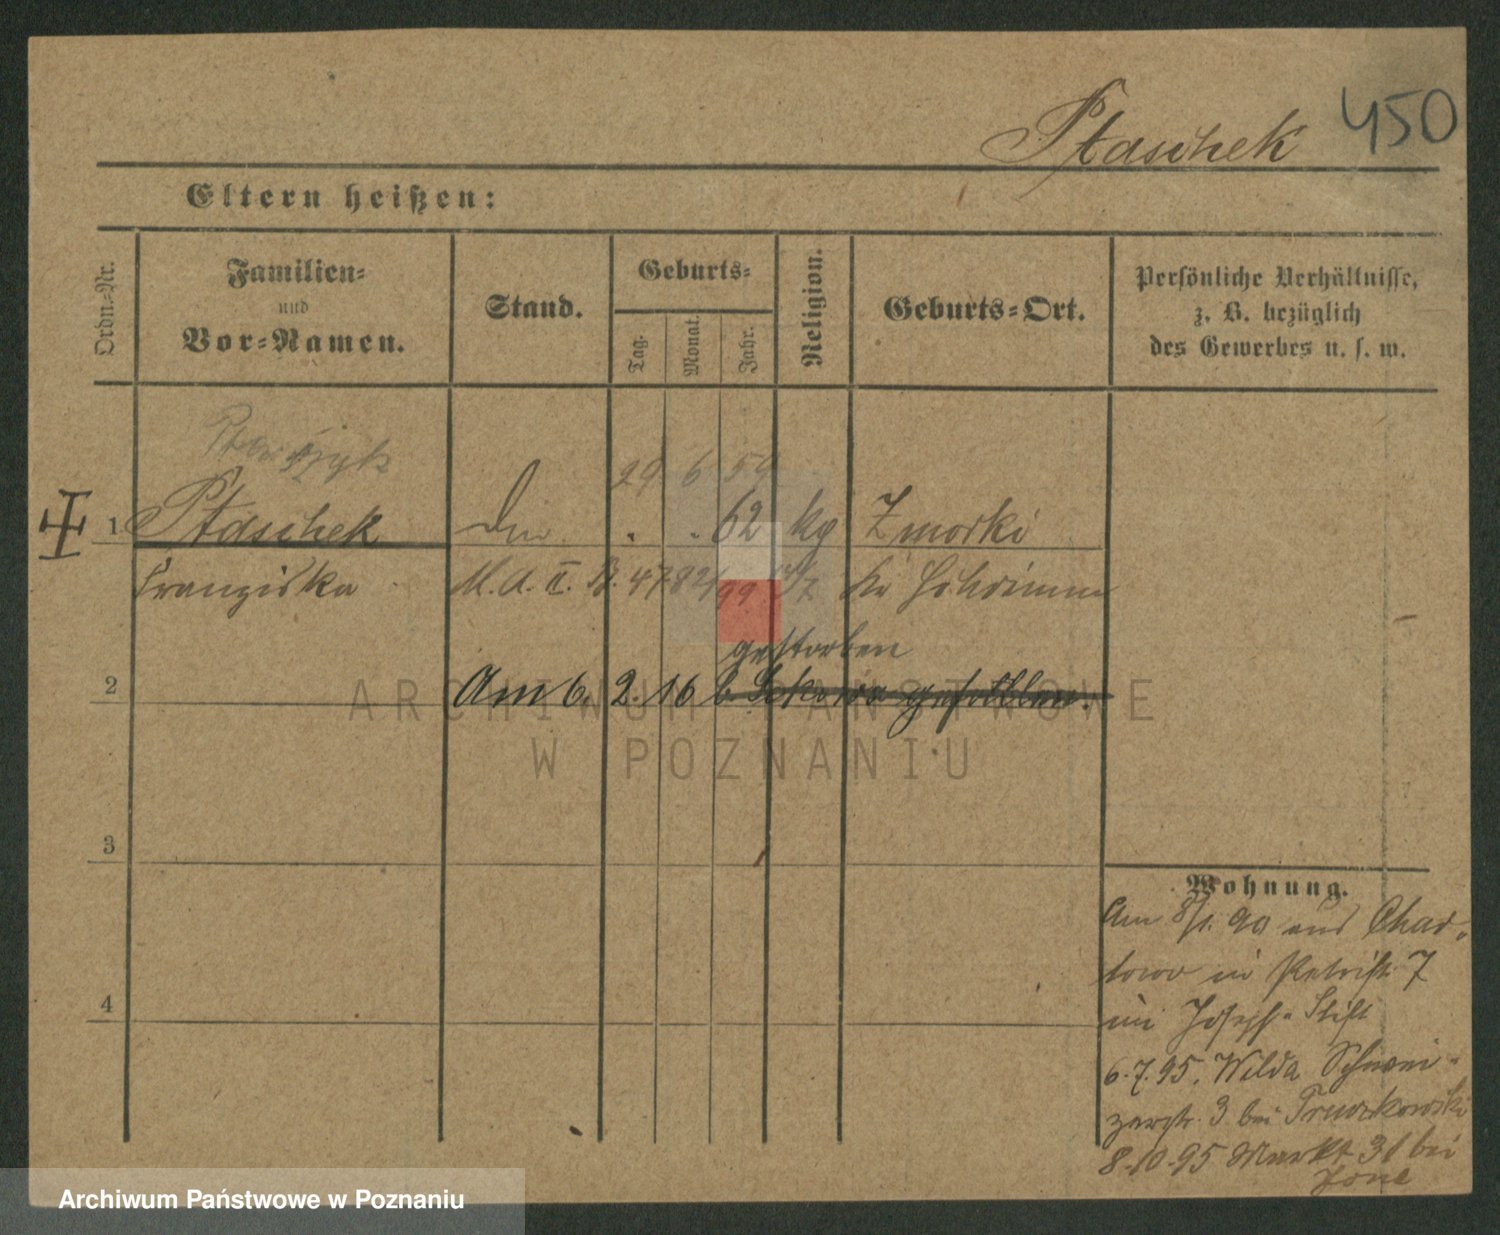 Ptaschek 450
Eltern heißen:
Ordn.=Nr.
Familien=
und
Vor=Namen.
Stand.
Geburts=
Tag.
Monat.
Jahr.
Religion.
Geburts=Ort.
Persönliche Verhältnisse,
z. B. bezüglich
des Gewerbes u. s. w.
29 6 59
1 Ptaschek . . 62 kg Zmorki
Franziska M. A. II. B.
gestorben
2 Am 6. 2. 16
ARCHIWUM PAŃSTWOWE
W POZNANIU
3
4
Wohnung.
Am 8/1. 90 aus Char=
towo in Petristr. 7
im Joseph=Stift
6.7.95. Wilda Schwei=
zerstr. 3 bei
8.10.95 Markt 31 bei
Archiwum Państwowe w Poznaniu